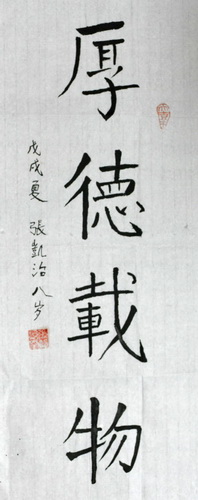 厚德載物
戊戌夏 張凱治 八岁